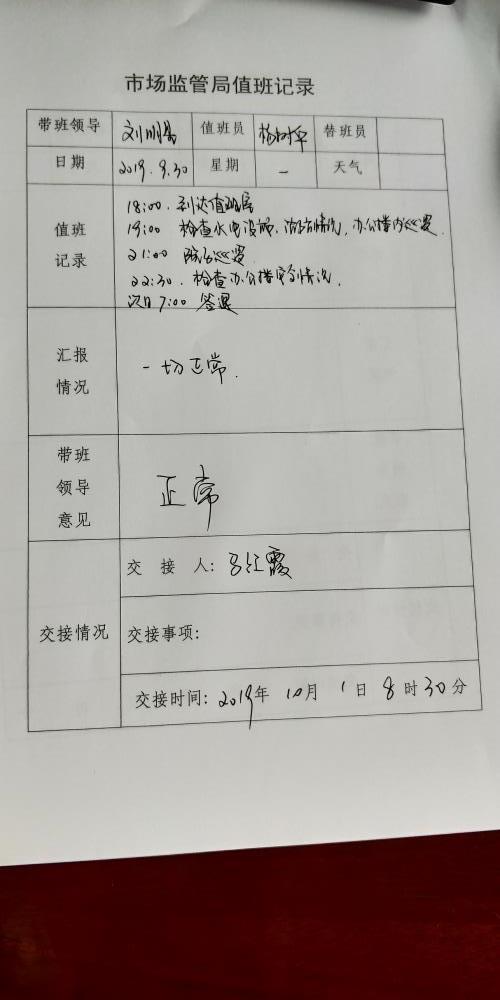 市场监管局值班记录
带班领导 刘明 值班员 替班员
日期 2019.9.30 星期 一 天气
值班记录
18:00. 到达值班房
19:00 检查水电设施、消防情况, 办公楼内巡逻.
21:00 院台巡逻
22:30. 检查办公楼安全情况.
次日7:00 签退
汇报情况
一切正常.
带班领导意见
正常
交接情况
交接人: 吕红霞
交接事项:
交接时间: 2019年 10月 1日 8时30分